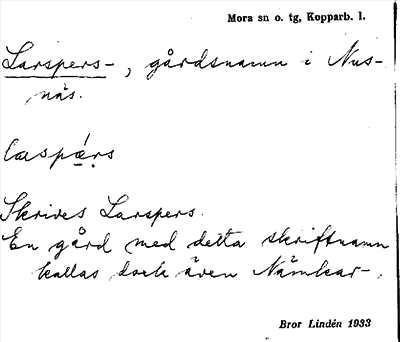 Mora sn o. tg, Kopparb. l.
Larspers-, gårdsnamn i Nus-
näs.
læspǽ̱ṛs
Skrives Larspers.
En gård med detta skriftnamn
kallas dock även Nämkar-.
Bror Lindén 1933